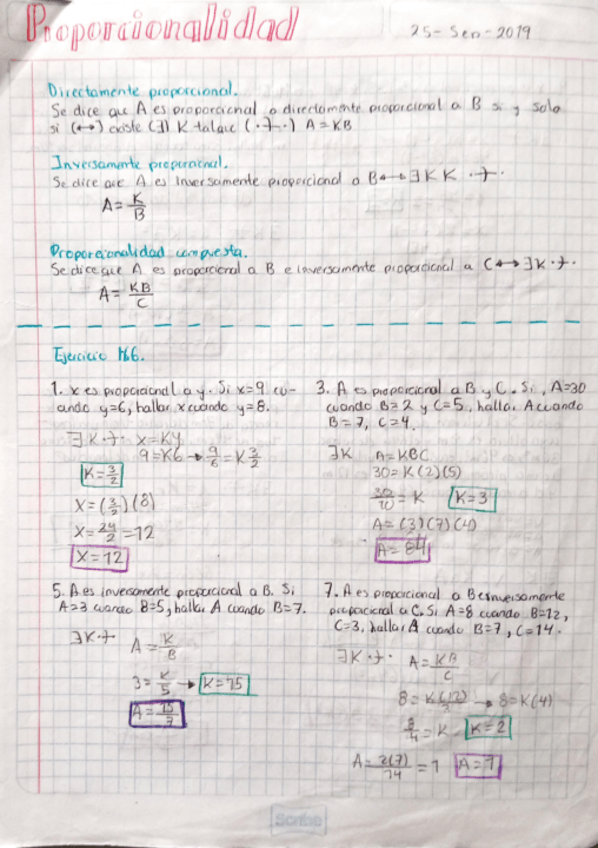 Proporcionalidad
25-Sen-2019
Directamente proporcional.
Se dice que A es proporcional o directamente proporcional a B si y solo
si (↔) existe (∃) K tal que (·+·) A=KB
Inversamente proporcional.
Se dice que A es inversamente proporcional a B↔∃KK ·+·
A=K/B
Proporcionalidad compuesta.
Se dice que A es proporcional a B e inversamente proporcional a C↔∃K·+·
A=KB/C
Ejercicio 166.
1. x es proporcional a y. Si x=9 cu-
ando y=6, hallar x cuando y=8.
∃K·+· x=Ky
9=K6→9/6=K 3/2
K=3/2
X=(3/2)(8)
X=24/2=12
X=12
3. A es proporcional a B y C. Si, A=30
cuando B=2 y C=5, hallar A cuando
B=7, C=4.
∃K A=KBC
30=K(2)(5)
30/10=K K=3
A=(3)(7)(4)
A=84
5. A es inversamente proporcional a B. Si
A=3 cuando B=5, hallar A cuando B=7.
∃K·+ A=K/B
3=K/5→K=15
A=15/7
7. A es proporcional a B e inversamente
proporcional a C. Si A=8 cuando B=12,
C=3, hallar A cuando B=7, C=14.
∃K·+· A=KB/C
8=K(12)/3→8=K(4)
8/4=K K=2
A=2(7)/14=1 A=1
Scribe